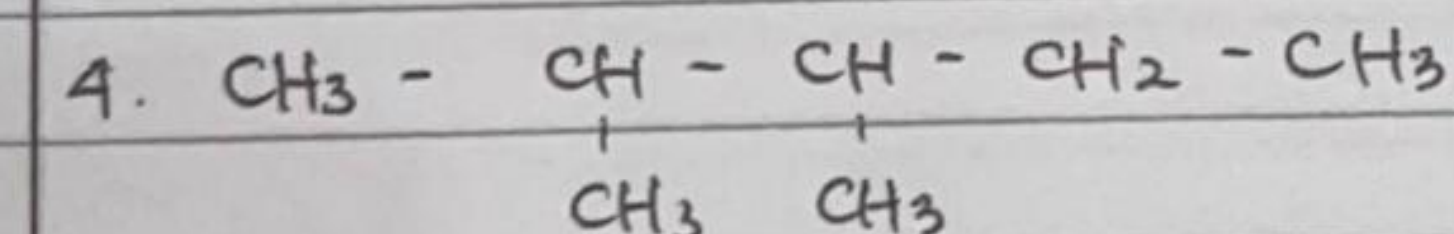 4. CH3 - CH - CH - CH2 - CH3
CH3 CH3